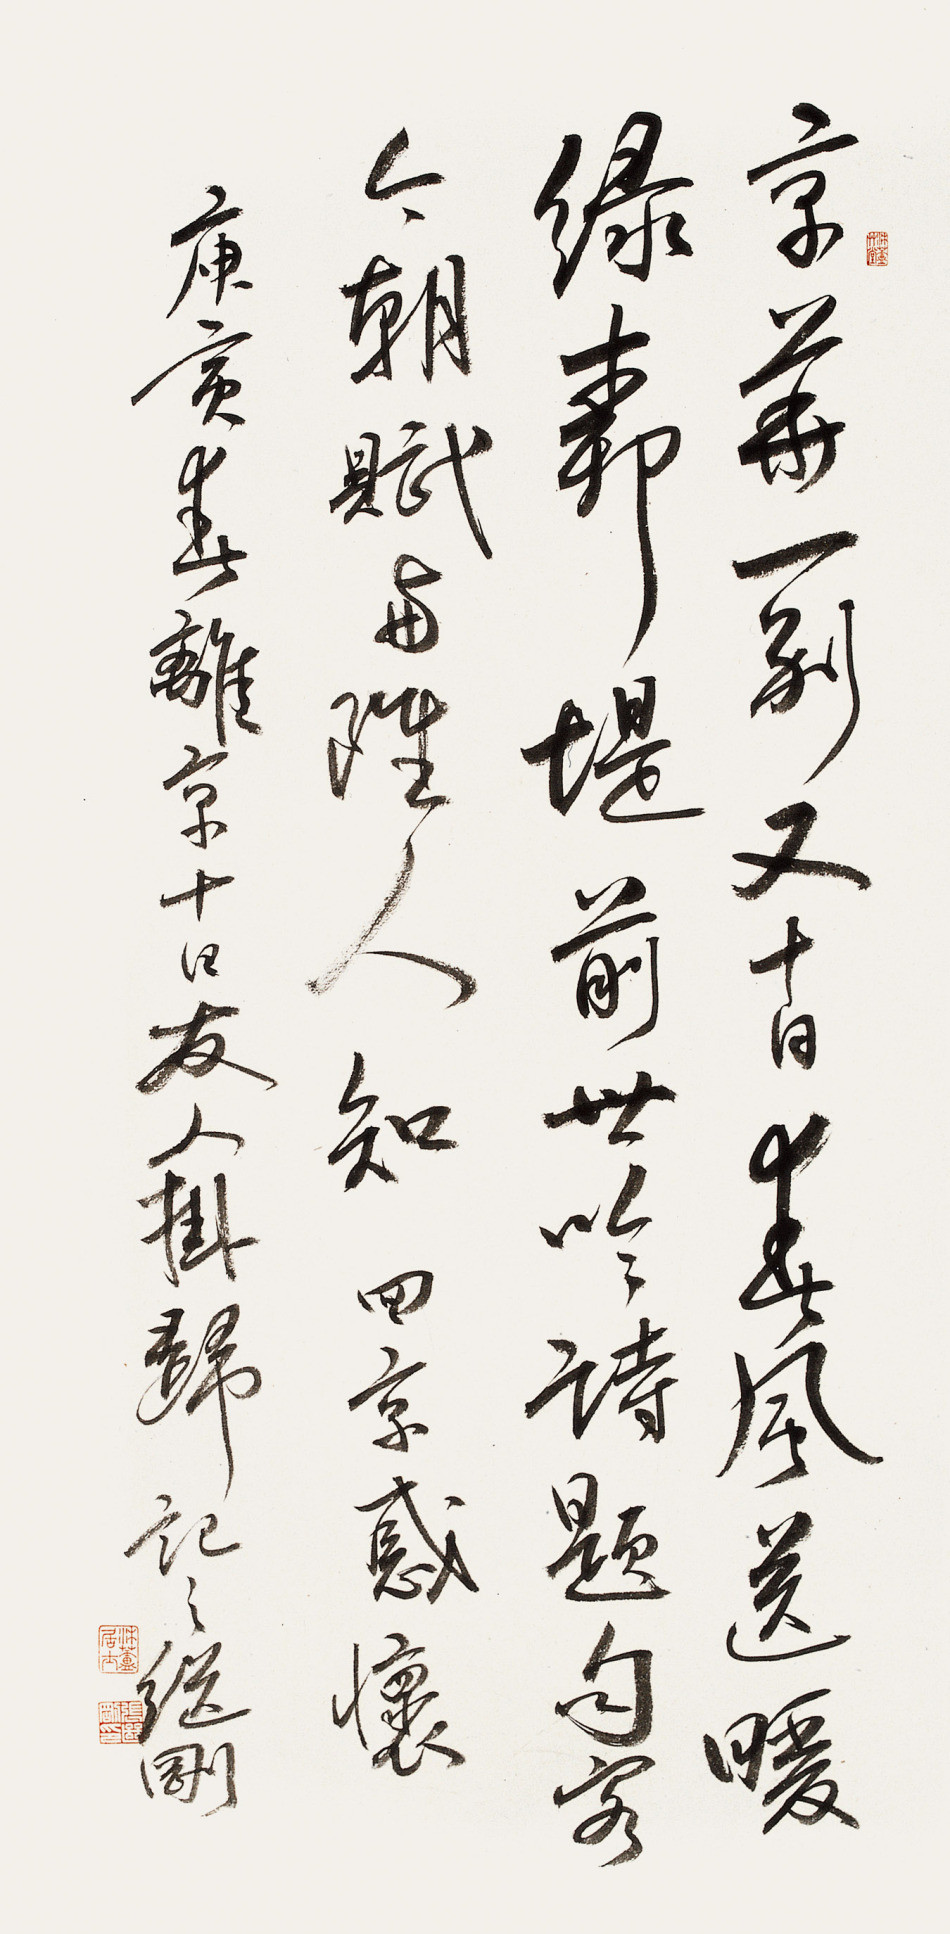 京華一別又十日春風送暖
緑柳堤前世吟詩題句客
今朝賦與誰人知 回京感懷
庚寅春離京十日友人掛歸記之繼剛